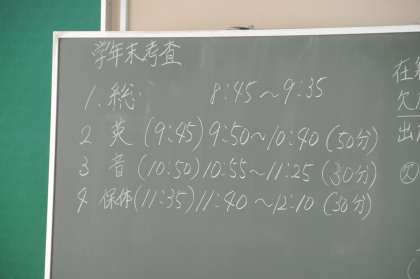 学年末考査
1. 総. 8:45～9:35
2 英 (9:45) 9:50～10:40 (50分)
3 音 (10:50) 10:55～11:25 (30分)
4 保体 (11:35) 11:40～12:10 (30分)
在
欠
出